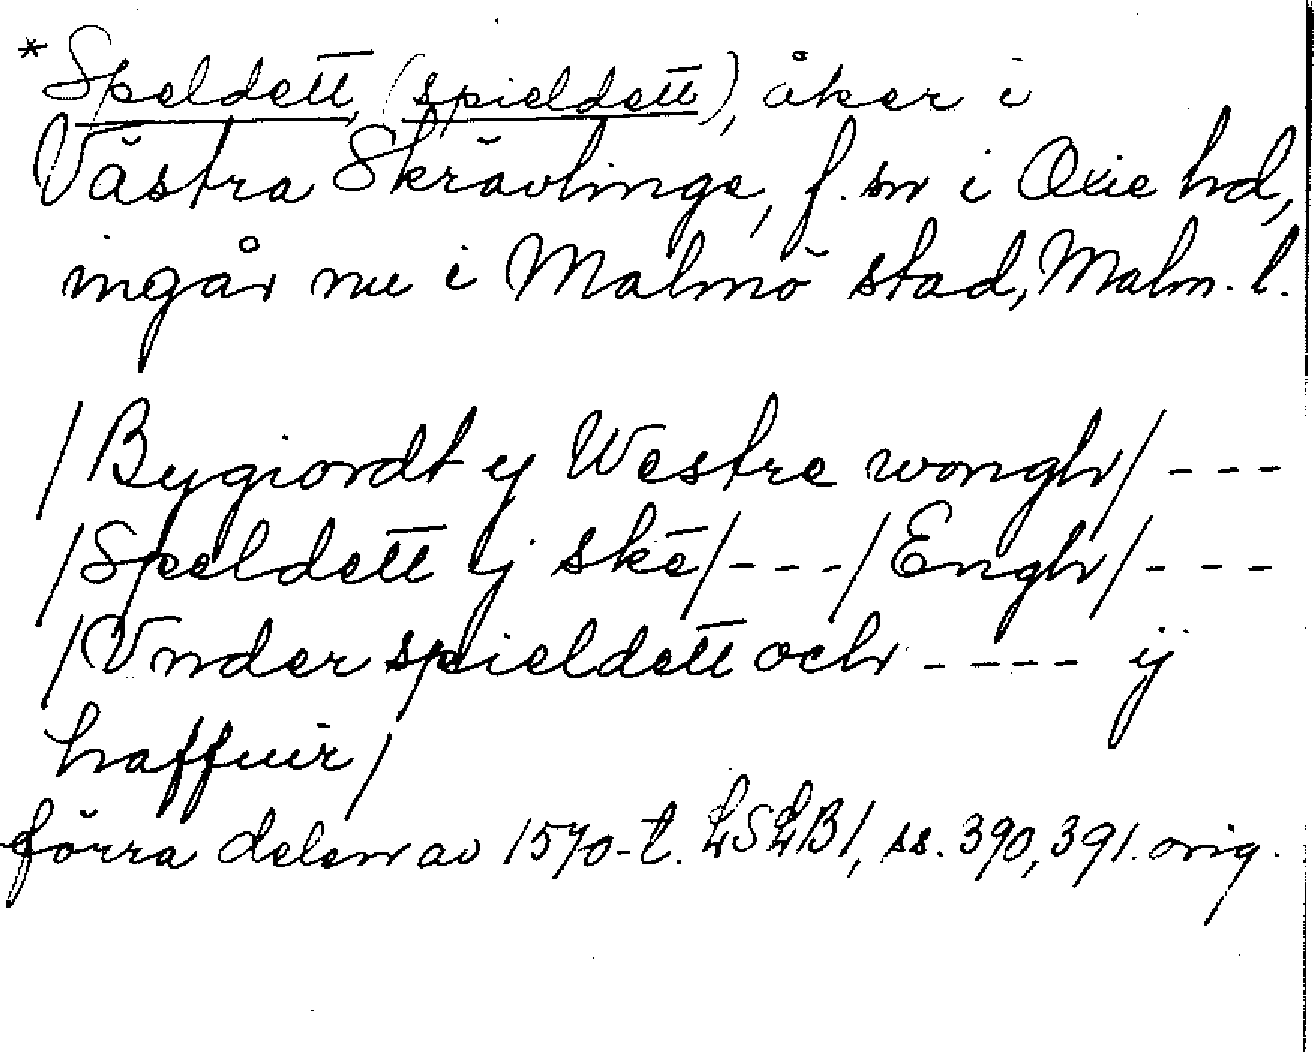 *Speldett, (spieldett), åker i
Västra Skrävlinge, f. sn i Oxie hd,
ingår nu i Malmö stad, Malm. l.
/Bygiordt y Westre wongh/ ---
/Speldett ij ske/---/Engh/---
/Vnder spieldett och ---- ij
haffuir/
förra delen av 1570-t. LSLB1, ss. 390, 391. orig.